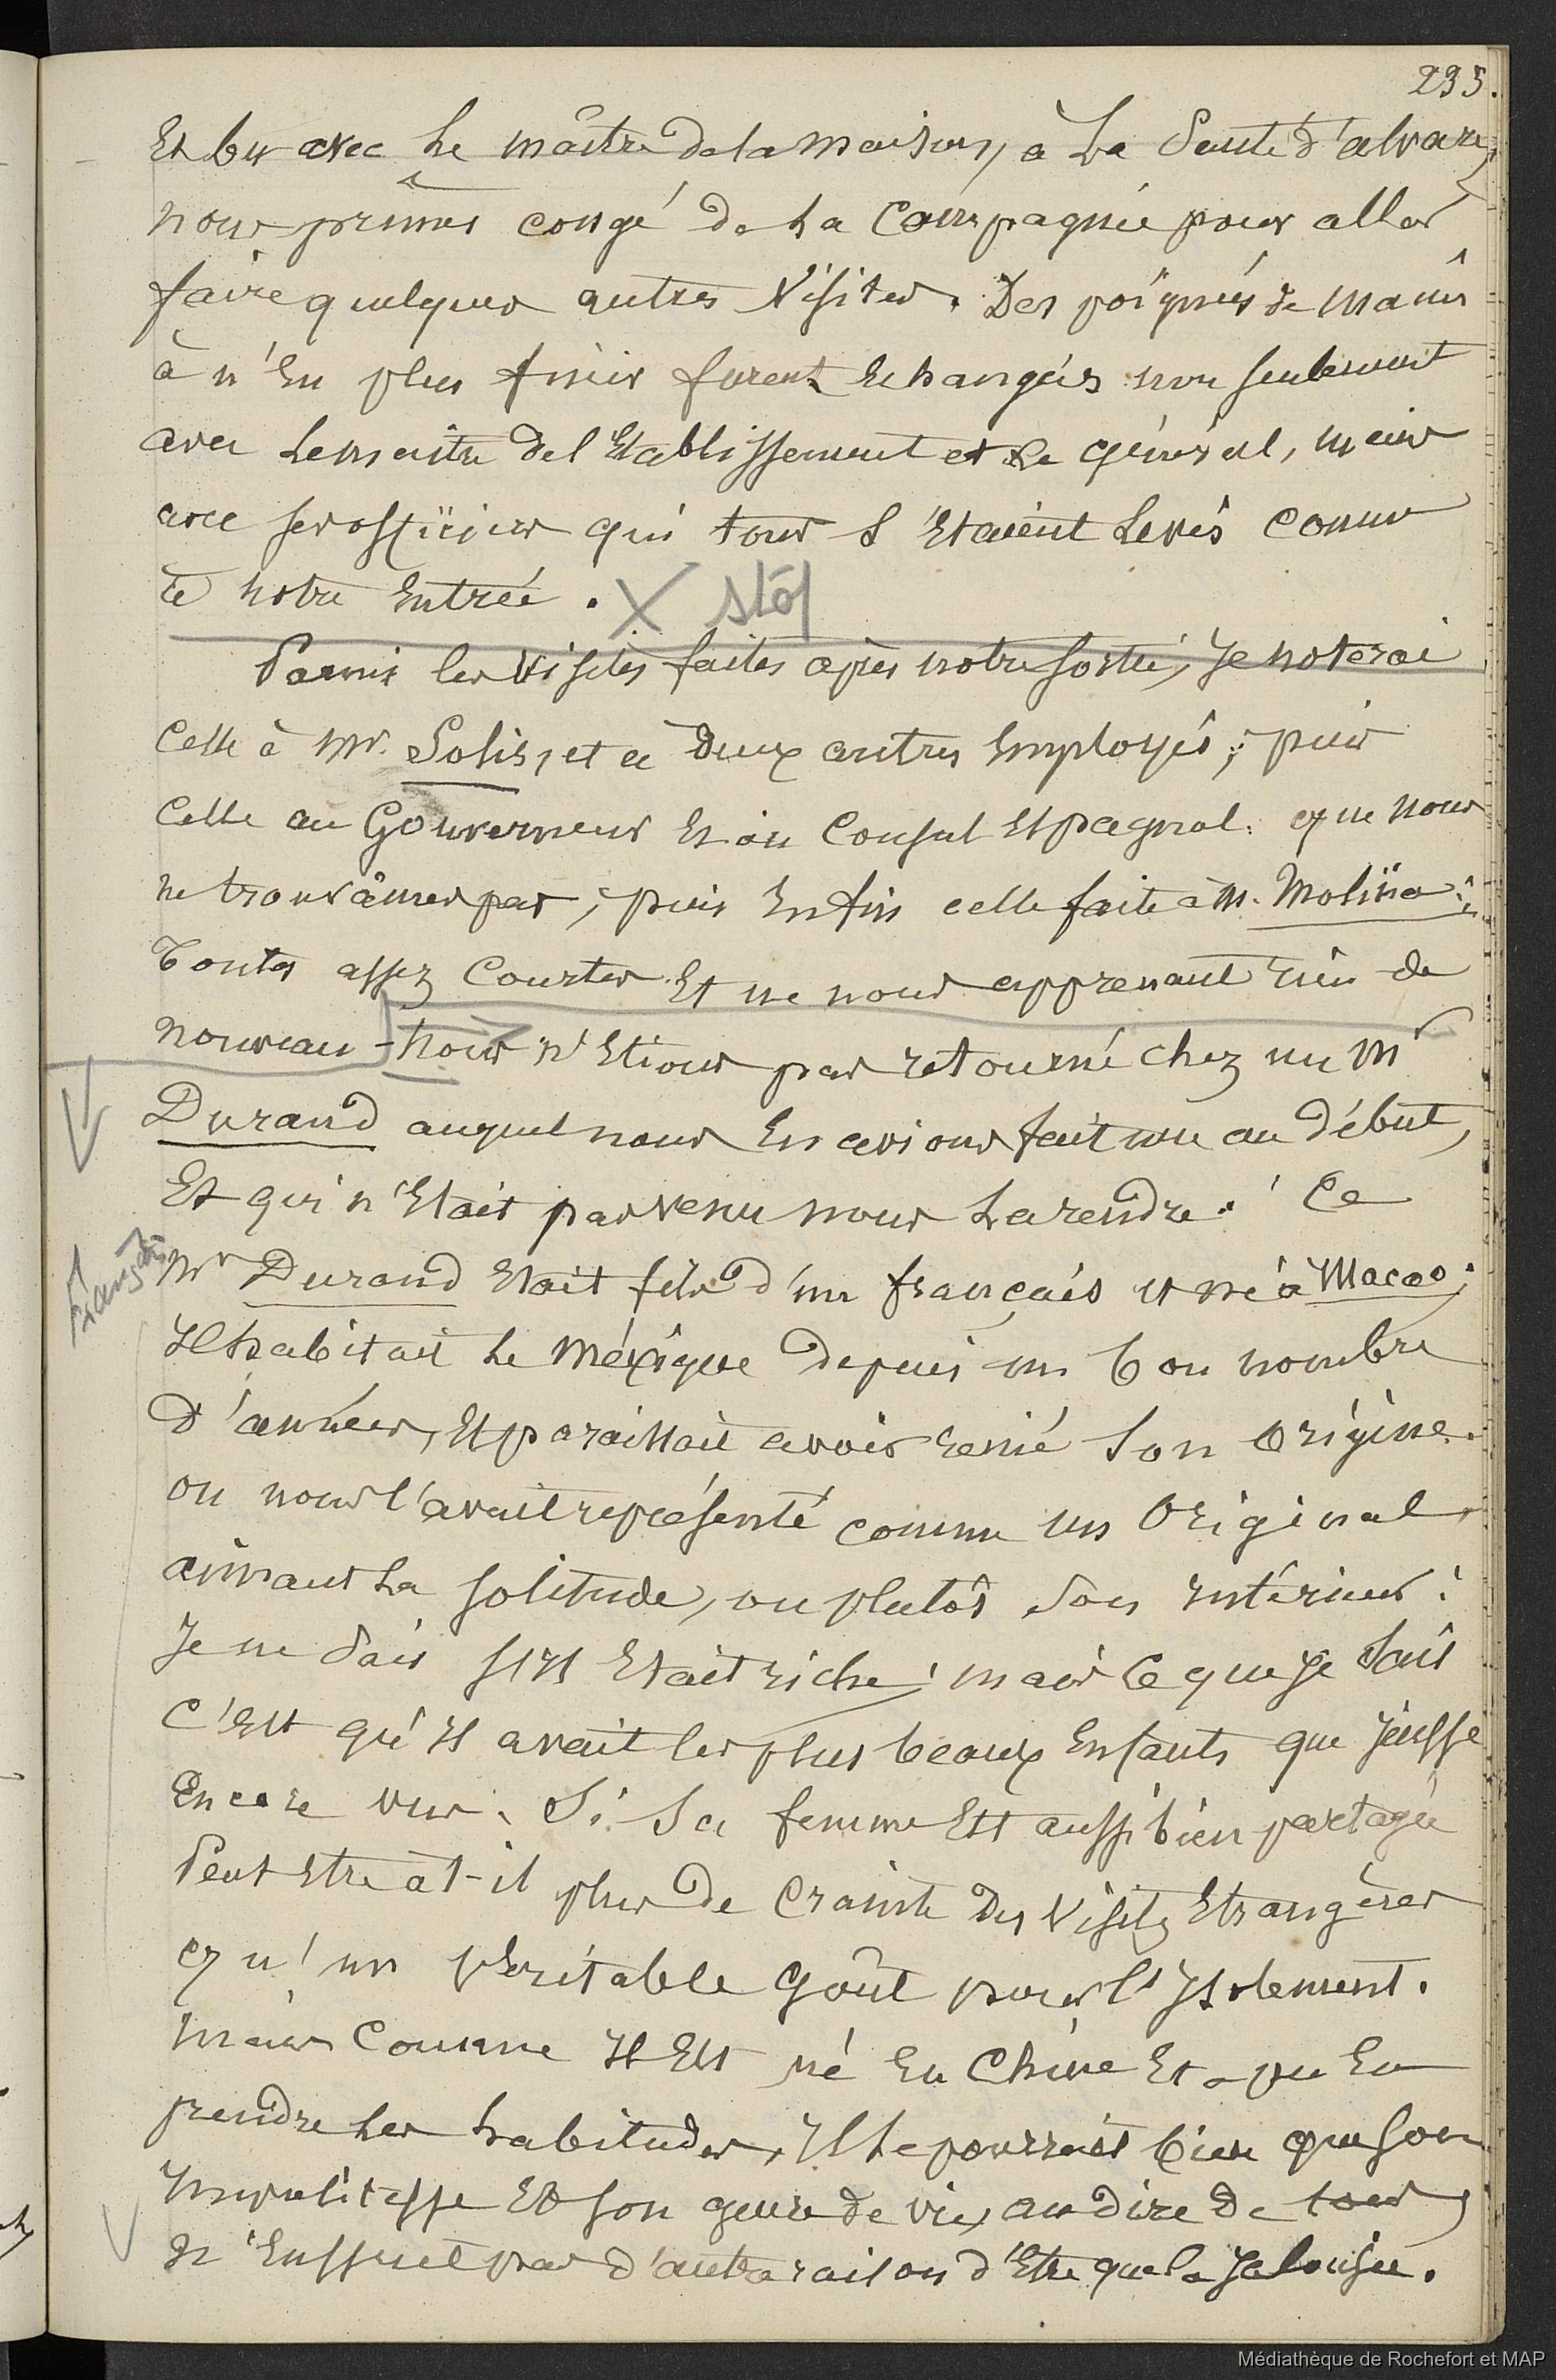 235.
Et bu avec le maître de la maison, à la santé d'alvarez,
nous prîmes congé de la compagnie pour aller
faire quelques autres visites. Des poignées de mains
à n'en plus finir furent echangées non seulement
avec le maître de l'Etablissement et le général, mais
avec ses officiers qui tous s'etaient levés comme
à notre entrée. X stop
Parmis les visites faites après notre sortie, Je noterai
celle à Mr. Solis, et à deux autres employés; puis
celle au Gouverneur et au Consul Espagnol. que nous
ne trouvâmes pas; puis enfin celle faite à M. Molina;
Toutes assez courtes et ne nous apprenant rien de
nouveau - Nous n'etions pas retourné chez un Mr
Durand auquel nous en avions fait une au début,
Et qui n'etait pas venu nous la rendre. Ce
Français
Mr Durand etait fils d'un français et né à Macao;
Il habitait le Méxique depuis un bon nombre
d'années, et paraissait avoir renié son origine.
on nous l'avait représenté comme un original,
aimant la solitude, ou plutôt son intérieur:
Je ne sais s'il etait riche; mais ce que je sais
c'est qu'il avait les plus beaux enfants que j'eusse
encore vus. Si sa femme est aussi bien partagée
Peut etre a t-il plus de crainte des visites etrangères
qu'un véritable goût pour l'isolement.
mais comme il est né en Chine et a pu en
prendre les habitudes, Il se pourrait bien que son
impolitesse et son genre de vie, au dire de tous,
n'eussent pas d'autre raison d'etre que la jalousie.
Médiathèque de Rochefort et MAP